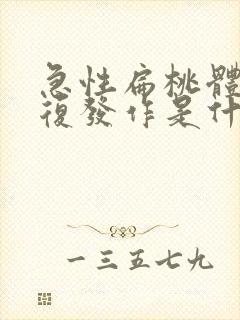 急性扁桃體
復發作是什
一三五七九